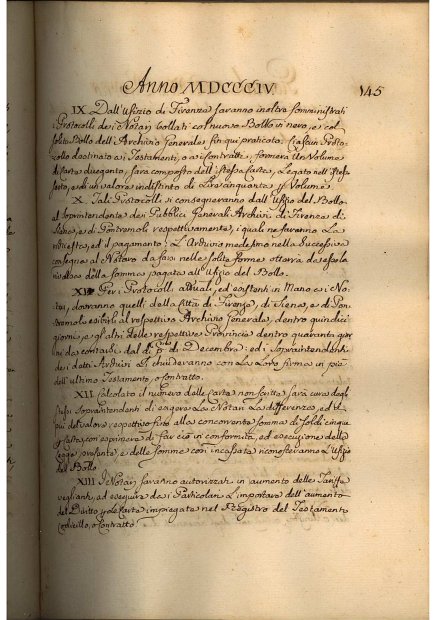 Anno MDCCCIV 145
IX. Dall'Ufizio di Firenze saranno inoltre somministrati
i Protocolli dei Notari bollati col nuovo Bollo in nero, e col
solito Bollo dell'Archivio Generale fin qui praticato: Ciascun Proto-
collo destinato ai Testamenti, o ai Contratti, formerà un Volume
di Carte dugento, sarà composto dell'istessa Carta, Legato nell'istes-
so, ed un valore indistinto di Lire cinquanta Volume.
X. Tali Protocolli si consegneranno dall'Ufizio del Bollo
al Soprintendente dei Pubblici Generali Archivi di Firenze di
Siena, e di Pontremoli respettivamente, i quali ne faranno La
richiesta, ed il pagamento: L'Archivio medesimo nella Successiva
consegna al Notaro da farsi nelle solite forme
della somma pagata all'Ufizio del Bollo.
XI. Per i Protocolli attuali, ed esistenti in Mano ai No-
tari, dovranno quelli della Città di Firenze, di Siena, e di Pon-
tremoli esibirli al respettivo Archivio Generale, dentro quindici
giorni, e gl'altri delle respettive Provincie dentro quaranta gior-
ni da contarsi dal dì Pmo di Decembre: ed i Soprintendenti
dei detti Archivi li chiuderanno con La Loro firma in piè
dell'ultimo Testamento, o Contratto.
XII. Calcolato il numero delle Carte non scritte sarà cura degl'
stessi Soprintendenti di esigere da i Notari La differenza, ed il
più del valore respettivo fino alla concorrente somma di soldi cinque
Carta, con esprimere di far ciò in conformità, ed esecuzione della
Legge presente, e delle somme così incassate riconosceranno L'Ufizio
del Bollo.
XIII. I Notari saranno autorizzati in aumento delle Tariffe
veglianti, ad esigere dai Particolari L'importare dell'aumento
del Diritto Carte impiegate nel Registro del Testamento
Codicillo, o Contratto.